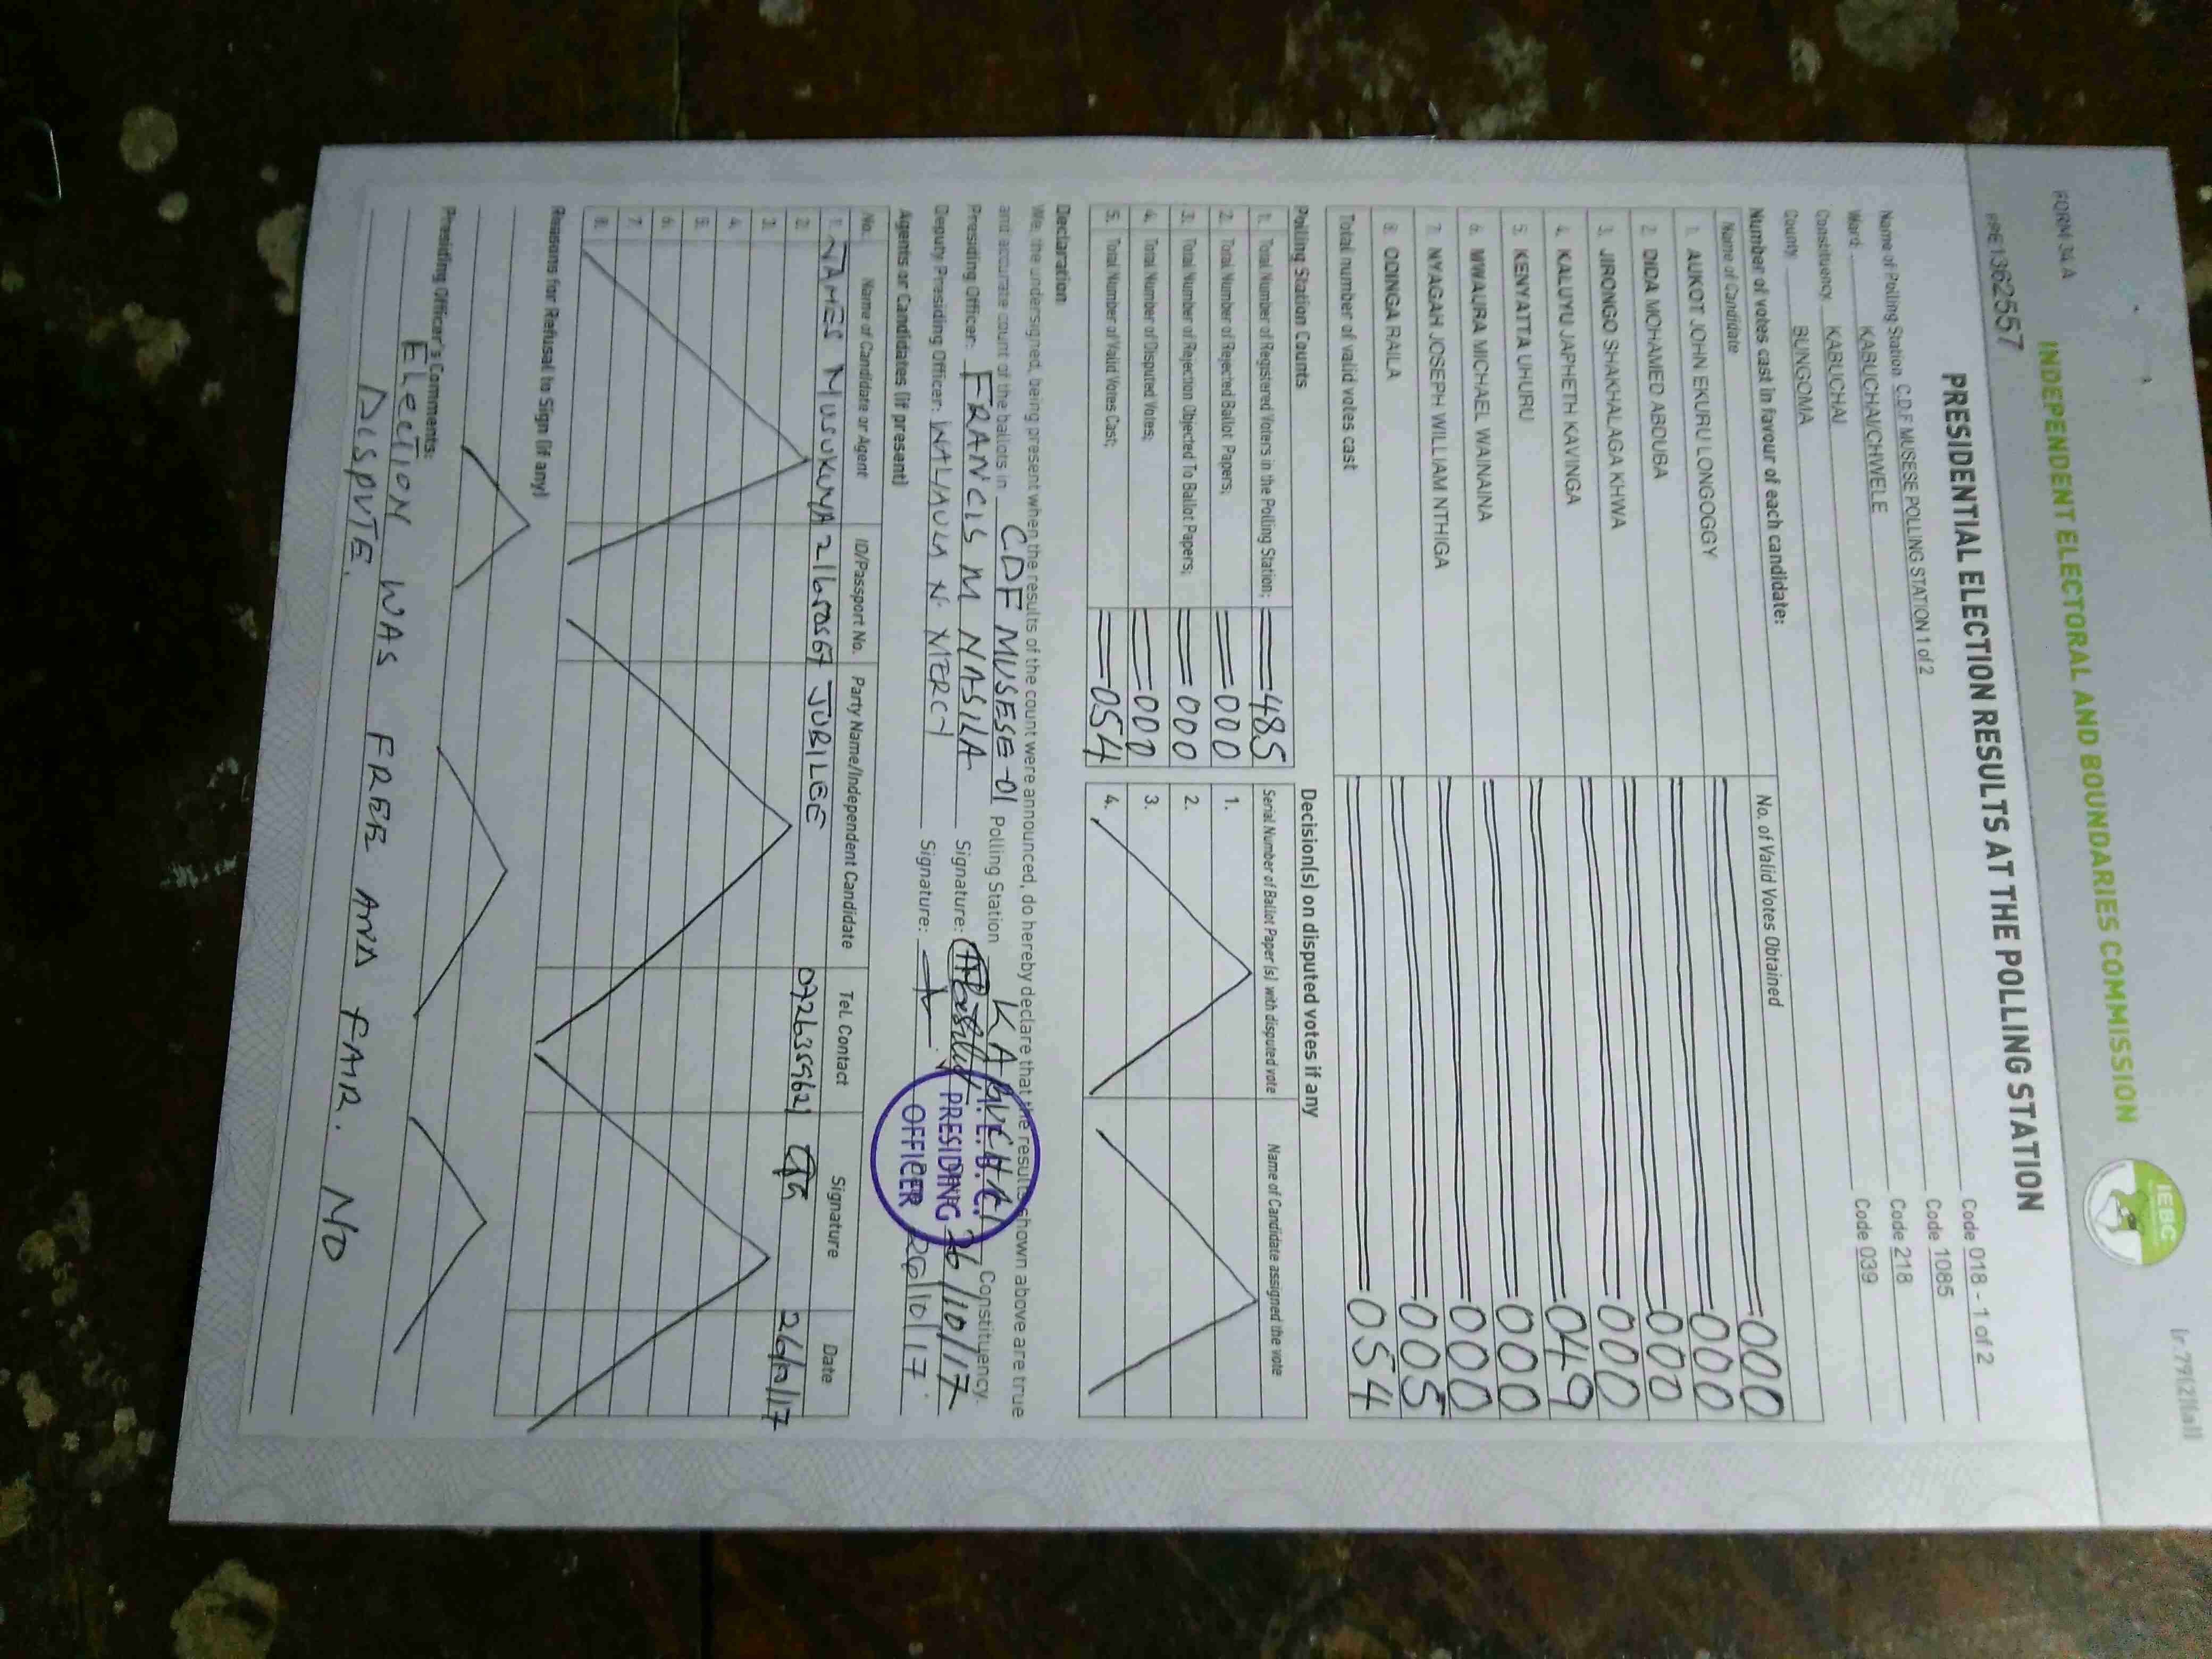 FORM 34 A
INDEPENDENT ELECTORAL AND BOUNDARIES COMMISSION
IEBC
PPE1362557
PRESIDENTIAL ELECTION RESULTS AT THE POLLING STATION
Name of Polling Station C.D.F MUSESE POLLING STATION 1 of 2 Code 018 - 1 of 2
Ward KABUCHAI/CHWELE Code 1085
Constituency KABUCHAI Code 218
County BUNGOMA Code 039
Number of votes cast in favour of each candidate:
Name of Candidate No. of Valid Votes Obtained
1. AUKOT JOHN EKURU LONGOGGY 000
2. DIDA MOHAMED ABDUBA 000
3. JIRONGO SHAKHALAGA KHWA 000
4. KALUYU JAPHETH KAVINGA 000
5. KENYATTA UHURU 049
6. MWAURA MICHAEL WAINAINA 000
7. NYAGAH JOSEPH WILLIAM NTHIGA 000
8. ODINGA RAILA 005
Total number of valid votes cast 054
Polling Station Counts
1. Total Number of Registered Voters in the Polling Station; 485
2. Total Number of Rejected Ballot Papers; 000
3. Total Number of Rejection Objected To Ballot Papers; 000
4. Total Number of Disputed Votes; 000
5. Total Number of Valid Votes Cast; 054
Decision(s) on disputed votes if any
Serial Number of Ballot Paper (s) with disputed vote Name of Candidate assigned the vote
1.
2.
3.
4.
Declaration
We, the undersigned, being present when the results of the count were announced, do hereby declare that the results shown above are true
and accurate count of the ballots in CDF MUSESE -01 Polling Station KABUCHAI Constituency.
Presiding Officer: FRANCIS M NASILA Signature: 26/10/17
Deputy Presiding Officer: WALIAULA N. MERCY Signature: 26/10/17.
I.E.B.C.
PRESIDING
OFFICER
Agents or Candidates (if present)
No. Name of Candidate or Agent ID/Passport No. Party Name/Independent Candidate Tel. Contact Signature Date
1. JAMES MUSUKUYA 21650567 JUBILEE 0726359621 26/10/17
2.
3.
4.
5.
6.
7.
8.
Reasons for Refusal to Sign (if any)
Presiding Officer's Comments:
ELECTION WAS FREE AND FAIR. NO
DISPUTE.